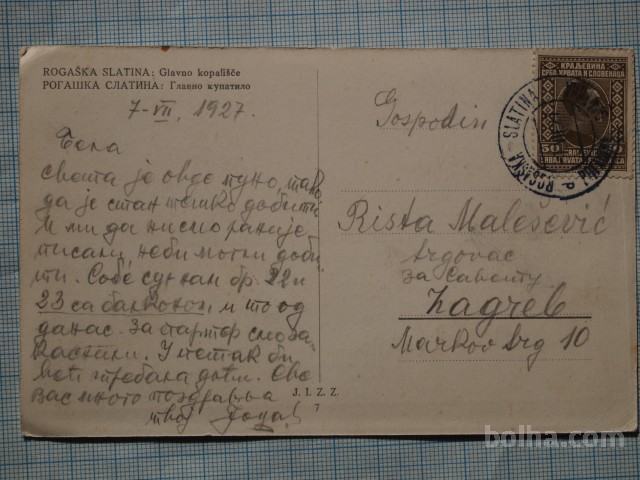 ROGAŠKA SLATINA: Glavno kopališče
РОГАШКА СЛАТИНА: Главно купатило
7-VII, 1927.
света је овде пуно, тако
да је стан тешко добити
и ми да нисмо раније
писали, неби могли доби-
ти. Собе су нам бр. 22 и
23 са балконом и то од
данас. За партер смо за-
каснили. У петак би
већ требала доћи. Све
Вас много поздравља
твој
Gospodin
Rista Malešević
trgovac
Zagreb
Markov trg 10
КРАЉЕВИНА
СРБА, ХРВАТА И СЛОВЕНАЦА
50
ROGAŠKA SLATINA
J. I. Z. Z.
7
bolha.com